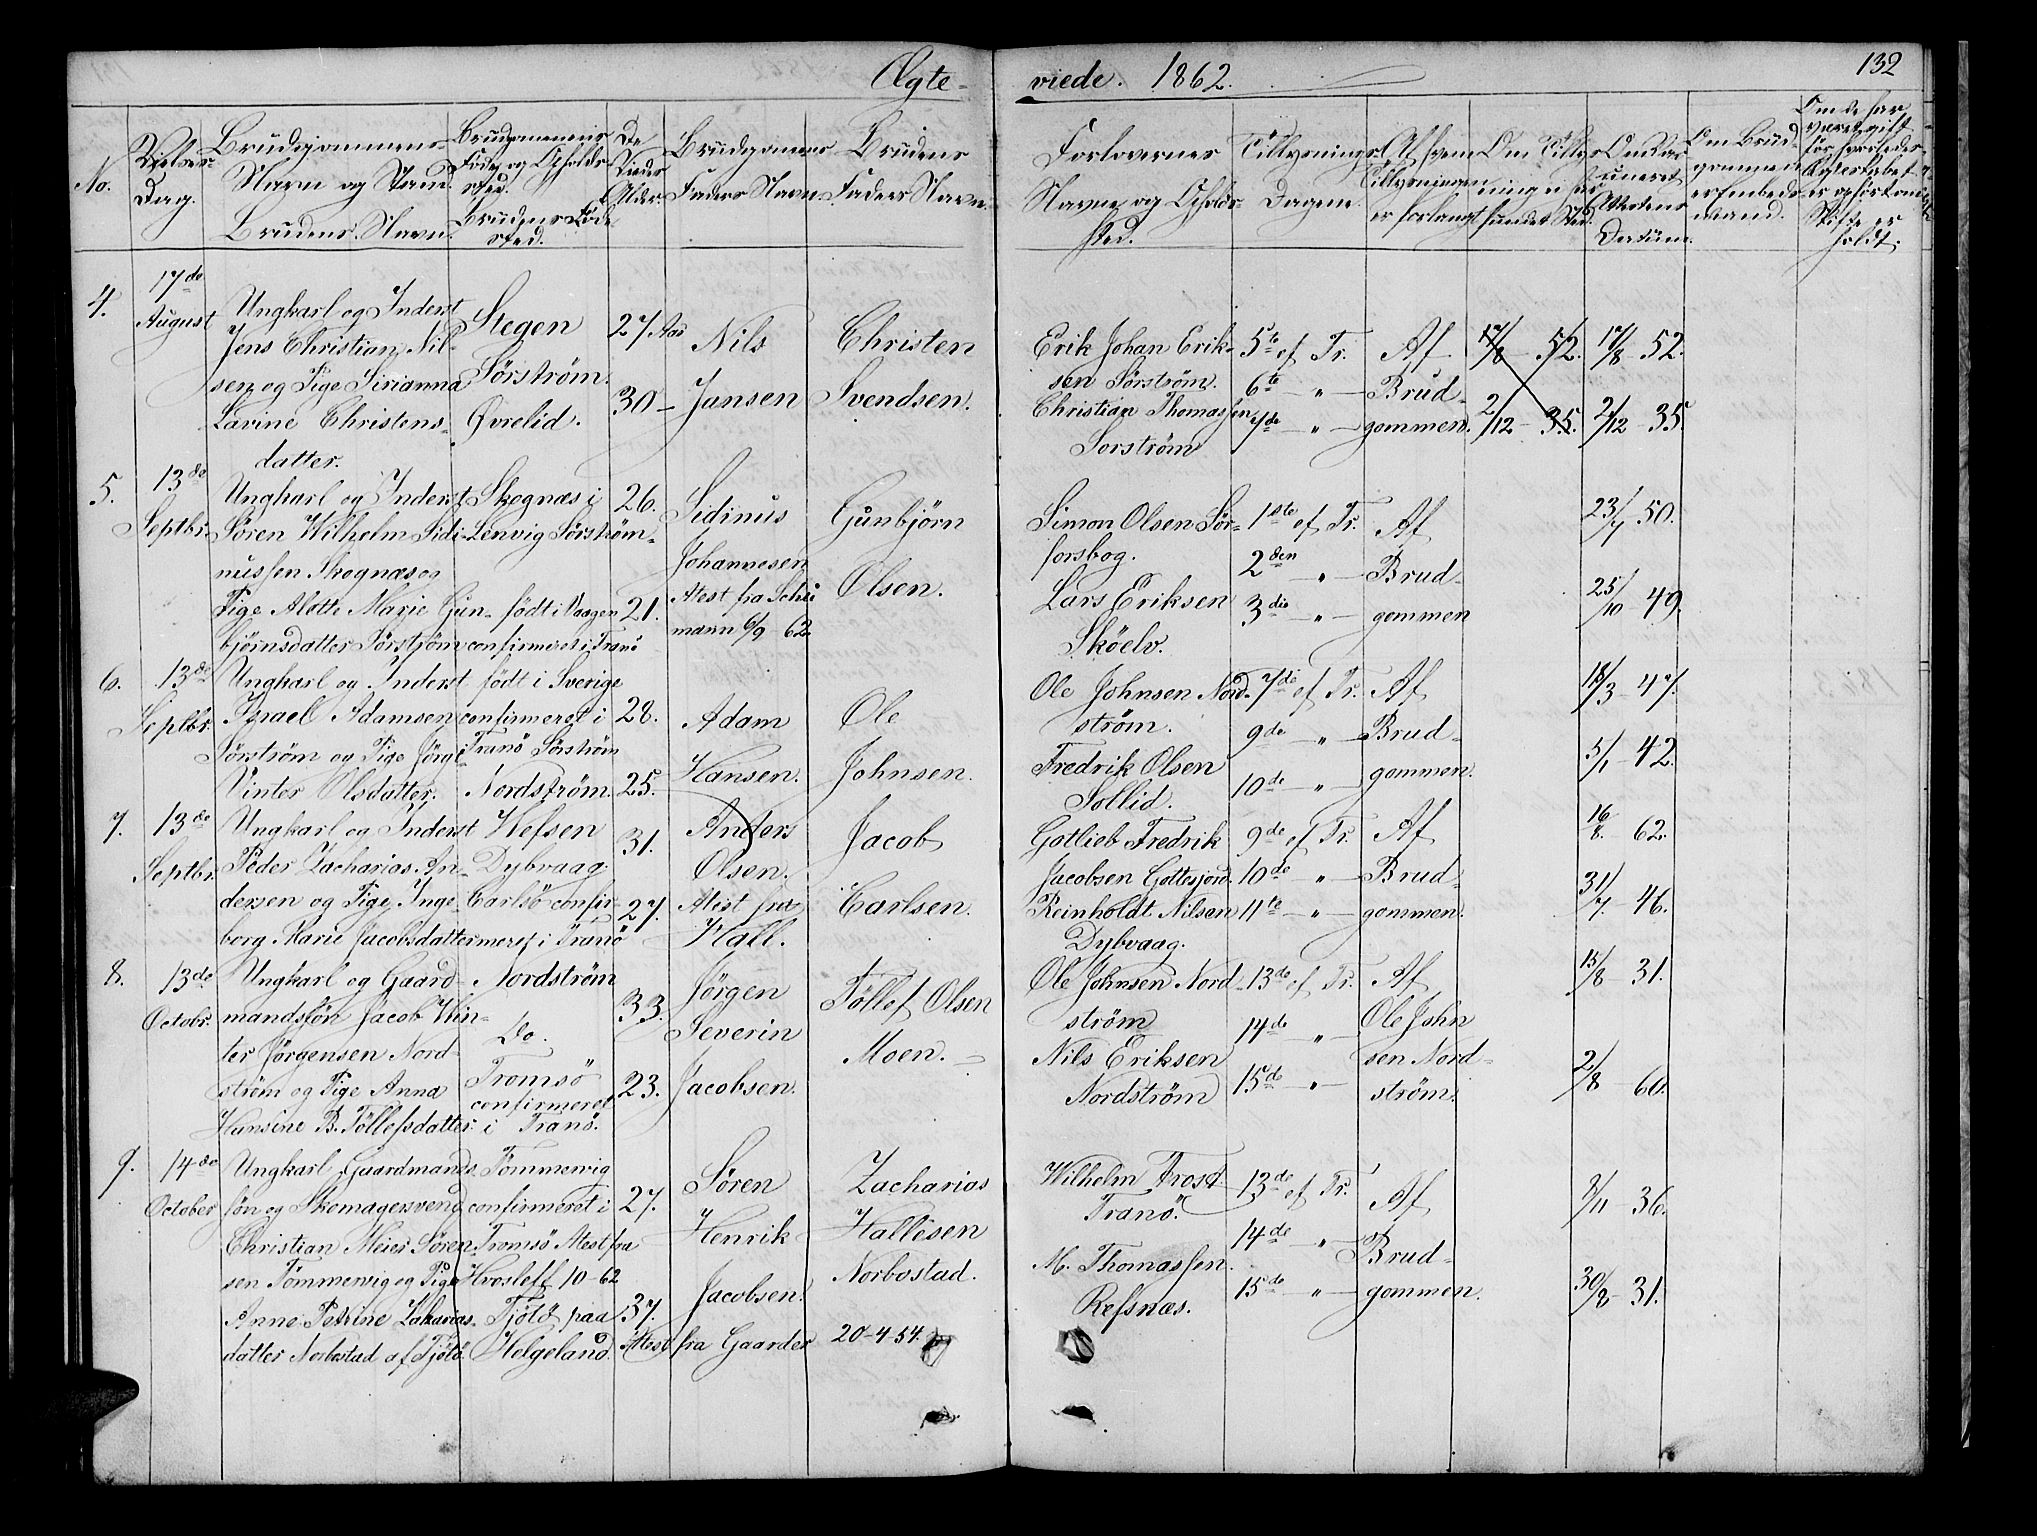 Ægte-
viede. 1862.
132
No.
Vielses-
Dag.
Brudgommens
Navn og Stand.
Brudens Navn.
Brudgommens
Føde og Opholds-
sted.
Brudens Føde-
sted.
De
Viedes
Alder.
Brudgommens
Faders Navn
Brudens
Faders Navn.
Forlovernes
Navne og Opholds-
sted.
Tillysnings
Dagene.
Af hvem
Tillysningen
er forlangt
Om
fundet Sted.
Attestens
Datum.
Om Brud-
gommen
er Embeds-
mand.
Om de har
været gift
før
Ægteskabet
er
Skifte er
holdt.
4.
17de
August
Ungkarl og Inderst
Jens Christian Nil-
sen og Pige Sirianna
Lavine Christens-
datter.
Stegen
Sørstrøm.
Øvrelid.
27 Aar
30 –
Nils
Jansen
Christen
Svendsen.
Erik Johan Erik-
sen Sørstrøm.
Christian Thomassen
Sorstrøm
5te ef Tr.
6te – " –
7de – " –
Af
Brud-
gommen.
17/8 – 52.
2/12 – 35.
17/8 – 52.
2/12 – 35.
5.
13de
Septbr.
Ungkarl og Inderst
Søren Wilhelm Sidi-
nussen Skognæs og
Pige Alotte Marie Gun-
bjørnsdatter Sørstrøm
Skognæs i
Lenvig Sørstrøm.
født i Vaagen
confirmeret i Tranö
26.
21.
Sidinus
Johannesen
Atest fra Schu
mann 6/9 – 62.
Gunbjörn
Olsen.
Simon Olsen Sör-
forsbog.
Lars Eriksen
Sköelv.
1ste ef Tr.
2den – " –
3die – " –
Af
Brud-
gommen
23/7 50.
25/10 49.
6.
13de
Septbr.
Ungkarl og Inderst
Israel Adamsen
Sørstrøm og Pige Jørgi-
Vinter Olsdatter.
født i Sverige
confirmeret i
Tranö Sörström
Nordström.
28.
25.
Adam
Hansen.
Ole
Johnsen.
Ole Johnsen Nord-
ström.
Fredrik Olsen
Sollid.
7de ef Tr.
9de – " –
10de – " –
Af
Brud-
gommen.
15/3 – 47.
5/1 – 42.
7.
13de
Septbr.
Ungkarl og Inderst
Peder Zacharias An-
dersen og Pige Inge-
borg Marie Jacobsdatter
Hefsen
Dybvaag
Carlsö confir-
meret i Tranö
31.
27.
Anders
Olsen.
Atest fra
Hall.
Jacob
Carlsen.
Gotlieb Fredrik
Jacobsen Gottesjord.
Reinholdt Nilsen
Dybvaag.
9de ef Tr.
10de – " –
11te – " –
Af
Brud-
gommen.
16/8. 62.
31/7. 46.
8.
13de
Octobr.
Ungkarl og Gaard-
mandssøn Jacob Win-
ter Jørgensen Nord-
strøm og Pige Anna
Hansine B. Töllefsdatter.
Nordström
Do.
Tromsö
confirmeret
i Tranö.
33.
23.
Jörgen
Severin
Jacobsen.
Töllef Olsen
Moen. –
Ole Johnsen Nord-
ström
Nils Eriksen
Nordström
13de ef Tr.
14de – " –
15de – " –
Af
Ole John
sen Nord-
ström.
15/8 – 31.
2/8 – 60.
9.
14de
October
Ungkarl Gaardmands-
søn og Skomagersvend
Christian Meier Søren-
sen Tömmervig og Pige
Anne Petrine Zakarias-
datter Norbostad af Tjötö.
Tömmervig
confirmeret i
Tromsö Atest fra
Hvosleff 10–62
Tjötö paa
Helgeland.
27.
37.
Atest fra Gaarder 20–4–54.
Søren
Henrik
Jacobsen.
Zacharias
Hallesen
Norbostad.
Wilhelm Frost
Tranö.
M. Thomassen.
Refsnæs.
13de ef Tr.
14de – " –
15de – " –
Af
Brud-
gommen.
3/11 – 36.
30/8 – 31.